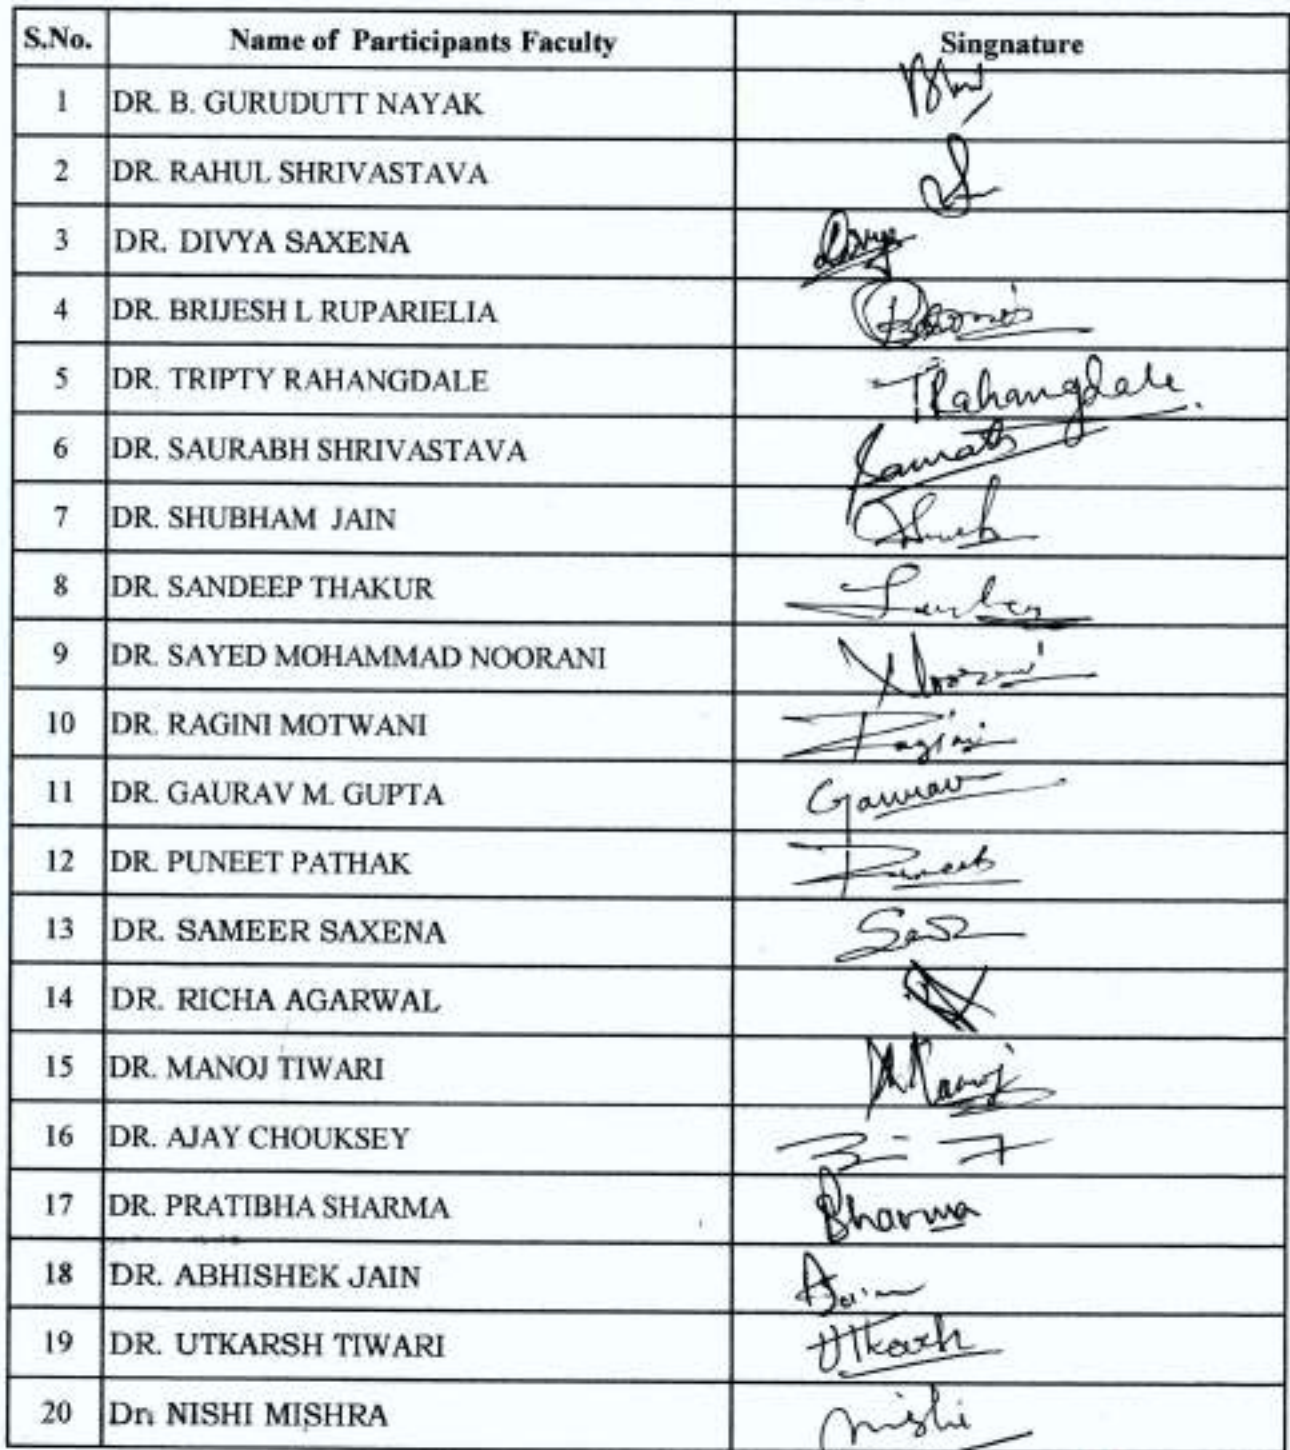 S.No. Name of Participants Faculty Singnature
1 DR. B. GURUDUTT NAYAK
2 DR. RAHUL SHRIVASTAVA
3 DR. DIVYA SAXENA Divya
4 DR. BRIJESH L RUPARIELIA
5 DR. TRIPTY RAHANGDALE TRahangdale
6 DR. SAURABH SHRIVASTAVA Saurabh
7 DR. SHUBHAM JAIN
8 DR. SANDEEP THAKUR
9 DR. SAYED MOHAMMAD NOORANI Noorani
10 DR. RAGINI MOTWANI Ragini
11 DR. GAURAV M. GUPTA Gaurav
12 DR. PUNEET PATHAK Puneet
13 DR. SAMEER SAXENA
14 DR. RICHA AGARWAL
15 DR. MANOJ TIWARI Manoj
16 DR. AJAY CHOUKSEY
17 DR. PRATIBHA SHARMA Sharma
18 DR. ABHISHEK JAIN AJain
19 DR. UTKARSH TIWARI Utkarsh
20 Dr. NISHI MISHRA nishi